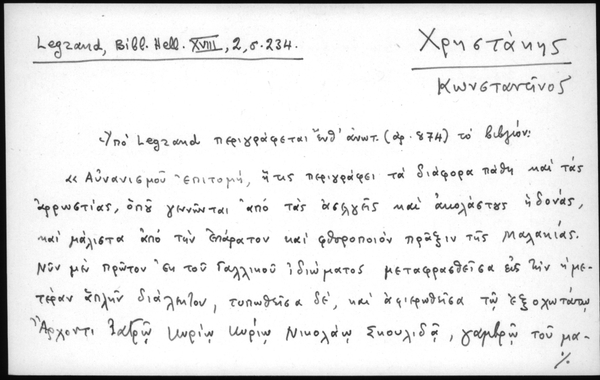 Legrand, Bibl. Hell. XVIII, 2, σ. 234.
Χρηστάκης
Κωνσταντῖνος
Ὑπὸ Legrand περιγράφεται ἔνθ' ἀνωτ. (ἀρ. 874) τὸ βιβλίον:
« Αὐνανισμοῦ ἐπιτομή, ἥτις περιγράφει τὰ διάφορα πάθη καὶ τὰς
ἀρρωστίας, ὁποῦ γεννῶνται ἀπὸ τὰς ἀσελγῆς καὶ ἀκολάστους ἡδονάς,
καὶ μάλιστα ἀπὸ τὴν ἐπάρατον καὶ φθοροποιὸν πρᾶξιν τῆς Μαλακίας.
Νῦν μὲν πρῶτον ἐκ τοῦ Γαλλικοῦ ἰδιώματος μεταφρασθεῖσα εἰς τὴν ἡμε-
τέραν ἁπλῆν διάλεκτον, τυπωθεῖσα δέ, καὶ ἀφιερωθεῖσα τῷ ἐξοχωτάτῳ
Ἄρχοντι Ἰατρῷ Κυρίῳ Κυρίῳ Νικολάῳ Σκουλιδᾷ, γαμβρῷ τοῦ μα-
./.